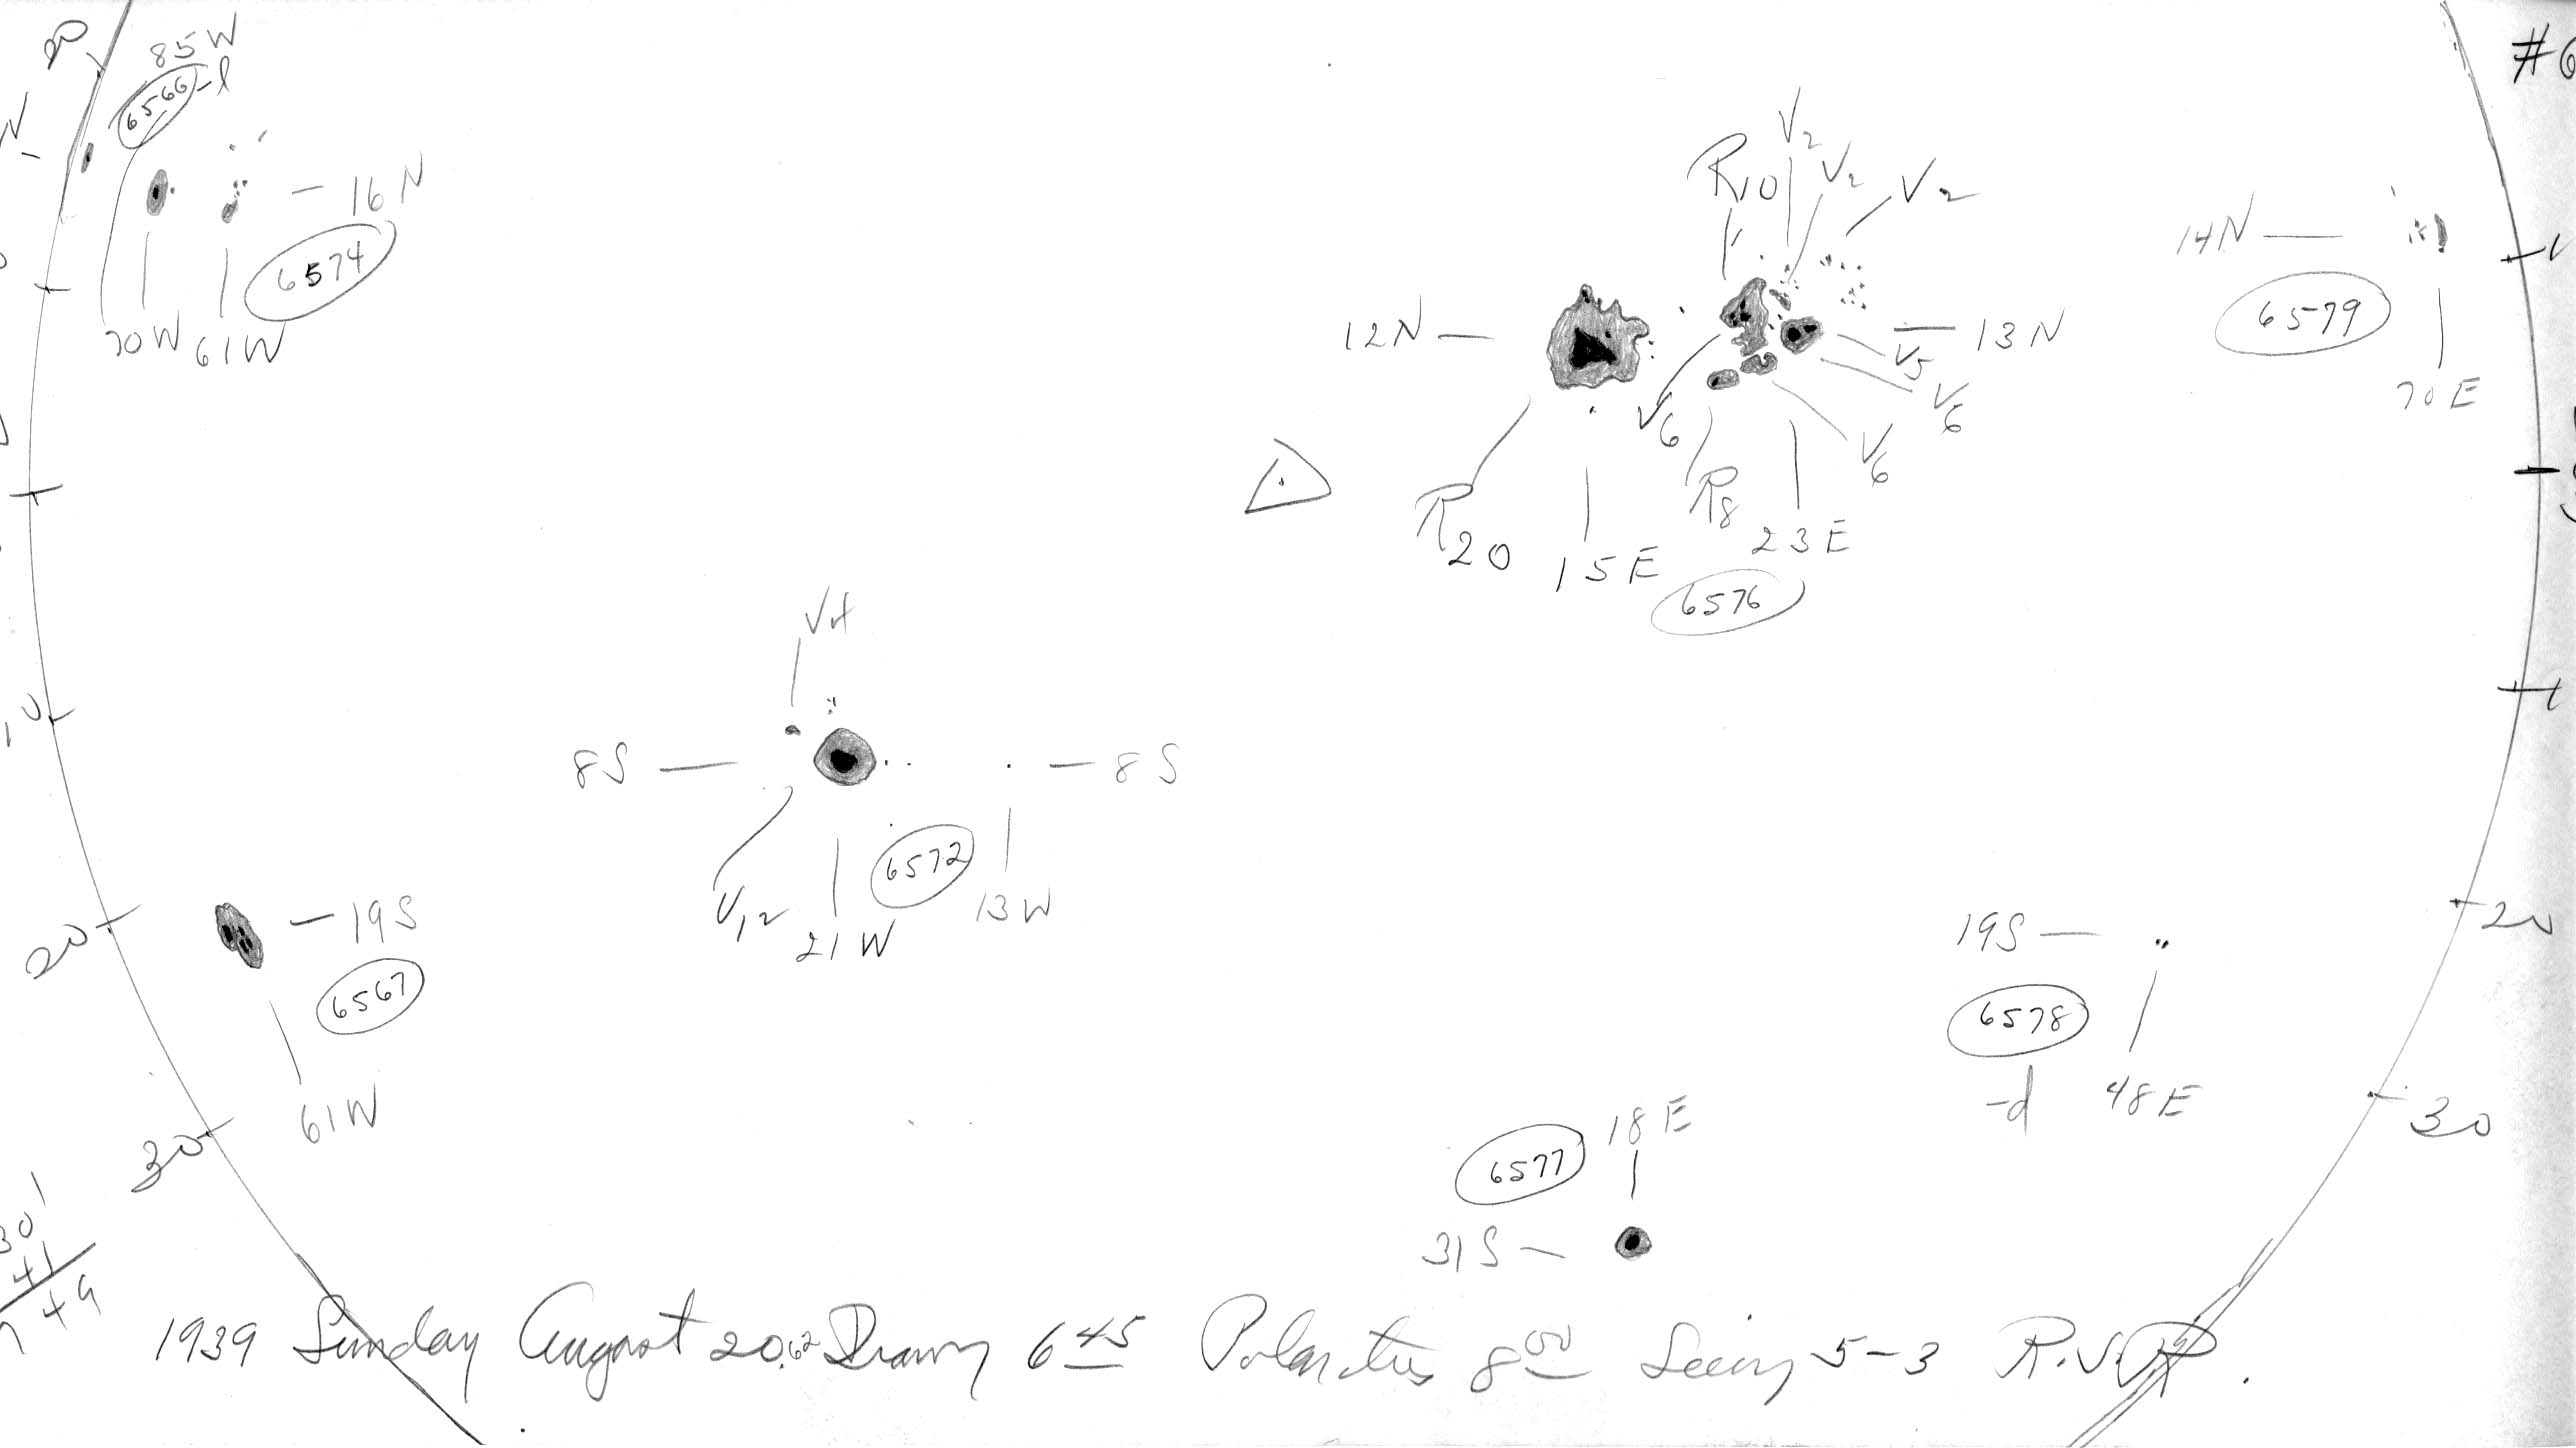 20
85W
6566-l
N
16N
6574
70W
61W
R10
V2
V2
V2
#6
14N
6579
70E
12N
13N
V5
V6
V6
V6
R8
R20
15E
23E
6576
V4
10
8S
8S
V12
21W
6572
13W
20
19S
6567
61W
30
19S
20
6578
-d
48E
30
18E
6577
31S
30
41
49
1939 Sunday August 20.62 Drawn 6 45 Polarities 8 00 Seeing 5-3 R.S.R.